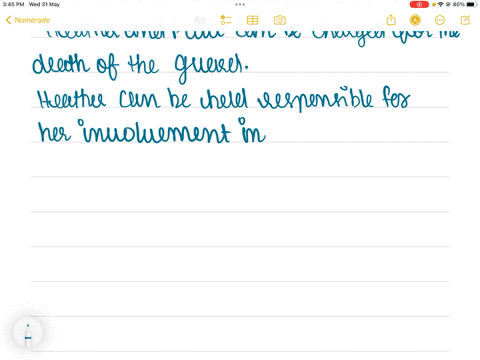 3:45 PM Wed 31 May
80%
Numerade
Aa
can be charged for the
death of the
Heather can be held responsible for
her involvement in